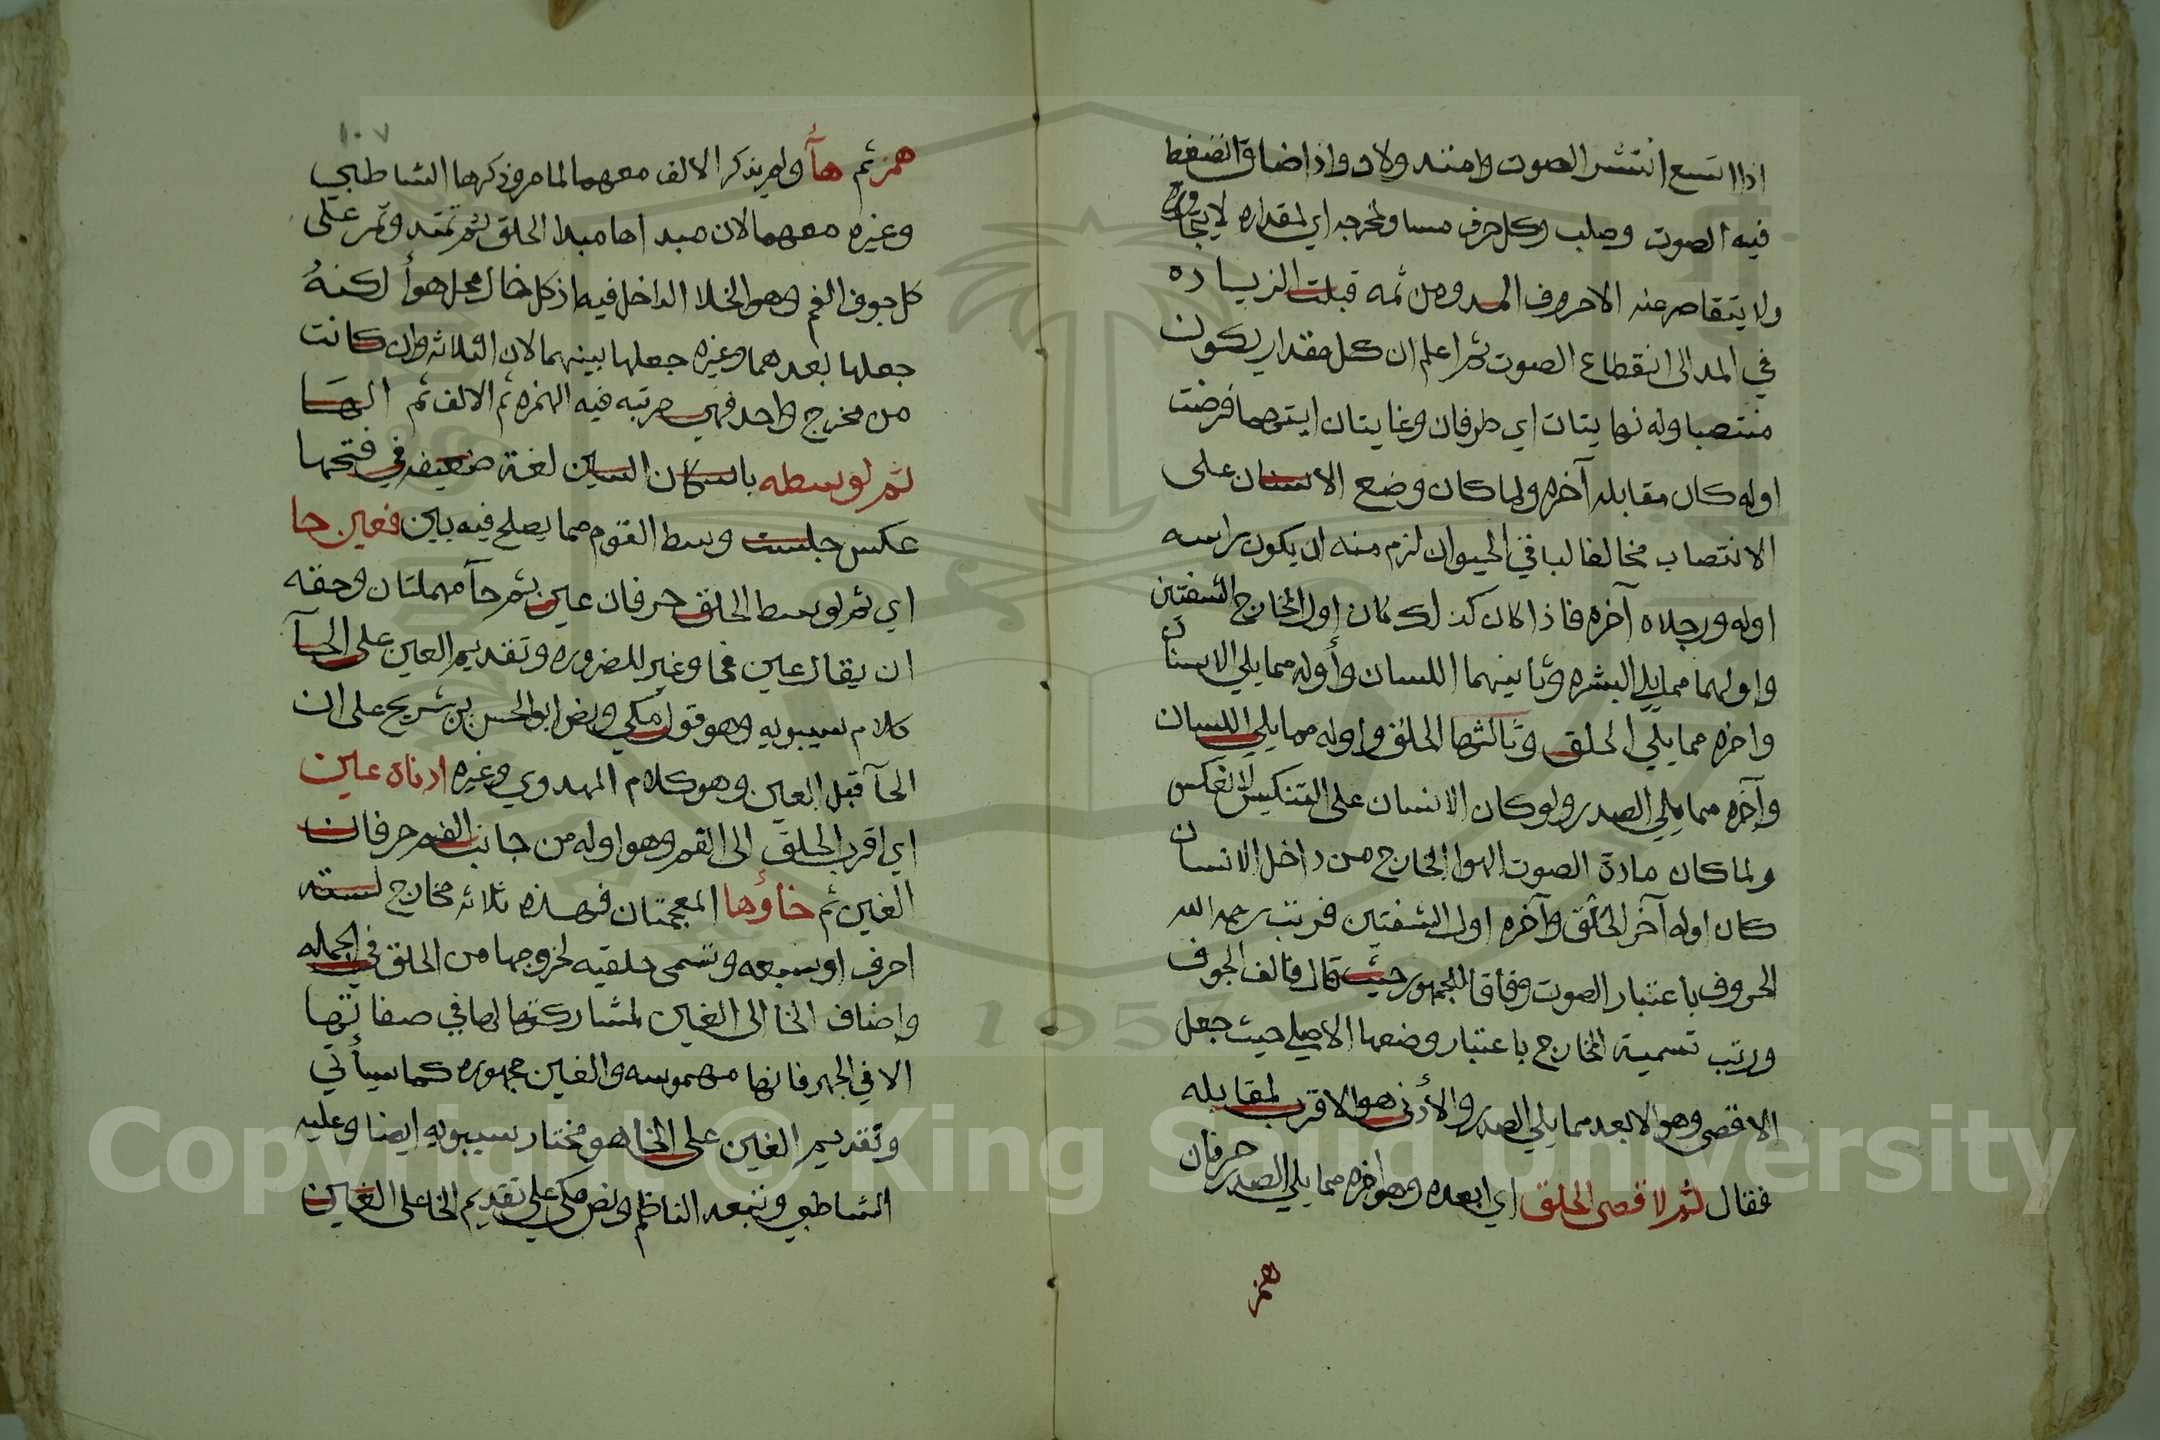 اذا اتسع انتشر الصوت وامتد ولان واذا ضاق انضغط
فيه الصوت وصلب وكل حرف مساو لمخرجه اي لمقداره لا يتجاوزه
ولا يتقاصر عنه الا حروف المد ومن ثمه قبلت الزياده
في المد الى انقطاع الصوت ثم اعلم ان كل مقدار يكون
منتصبا وله نهايتان اي طرفان وغايتان ايتهما فرضت
اوله كان مقابله آخره ولما كان وضع الانسان على
الانتصاب مخالفا لباقي الحيوان لزم منه ان يكون راسه
اوله ورجلاه آخره فاذا كان كذلك كان اول المخارج الشفتين
واولهما مما يلي البشره وثانيهما اللسان وأوله مما يلي الاسنان
واخره مما يلي الحلق وثالثها الحلق واوله مما يلي اللسان
وآخره مما يلي الصدر ولو كان الانسان على التنكيس لانعكس
ولما كان مادة الصوت الهوا الخارج من داخل الانسان
كان اوله آخر الحلق وآخره اول الشفتين فرتب رحمه الله
الحروف باعتبار الصوت وفاقا للجمهور حيث قال فالف الجوف
ورتب تسمية المخارج باعتبار وضعها الاصلي حيث جعل
الاقصى وهو الابعد مما يلي الصدر والأدنى هو الاقرب لمقابله
فقال ثم لاقصى الحلق اي ابعده وهو اخره مما يلي الصدر حرفان
همز
١٠٧
همز ثم هآء ولم يذكر الالف معهما لما مر وذكرها الشاطبي
وغيره معهما لان مبداها مبدا الحلق ثم تمتد وتمر على
كل جوف الفم وهو الخلا الداخل فيه اذ كل خال محل هوأ لكنه
جعلها بعدهما وغيره جعلها بينهما لان الثلاثه وان كانت
من مخرج واحد فهي مرتبه فيه الهمزه ثم الالف ثم الها
ثم لوسطه باسكان السين لغة ضعيفه في فتحها
عكس جلست وسط القوم مما يصلح فيه بين فعين حا
اي ثم لوسط الحلق حرفان عين ثم حآ مهملتان وحقه
ان يقال عين فحا وغير للضروره وتقديم العين على الحآ
كلام سيبويه وهو قول مكي ونص ابو الحسن بن شريح على ان
الحآ قبل العين وهو كلام المهدوي وغيره ادناه عين
اي اقرب الحلق الى الفم وهو اوله من جانب الفم حرفان
الغين ثم خاؤها المعجمتان فهذه ثلاثه مخارج لسته
احرف او سبعه وتسمى حلقيه لخروجها من الحلق في الجمله
واضاف الخا الى الغين لمشاركتها لها في صفاتها
الا في الجهر فانها مهموسه والغين مجهوره كما سيأتي
وتقديم الغين على الخا هو مختار سيبويه ايضا وعليه
الشاطبي وتبعه الناظم ونص مكي على تقديم الخا على الغين
Copyright © King Saud University
1957